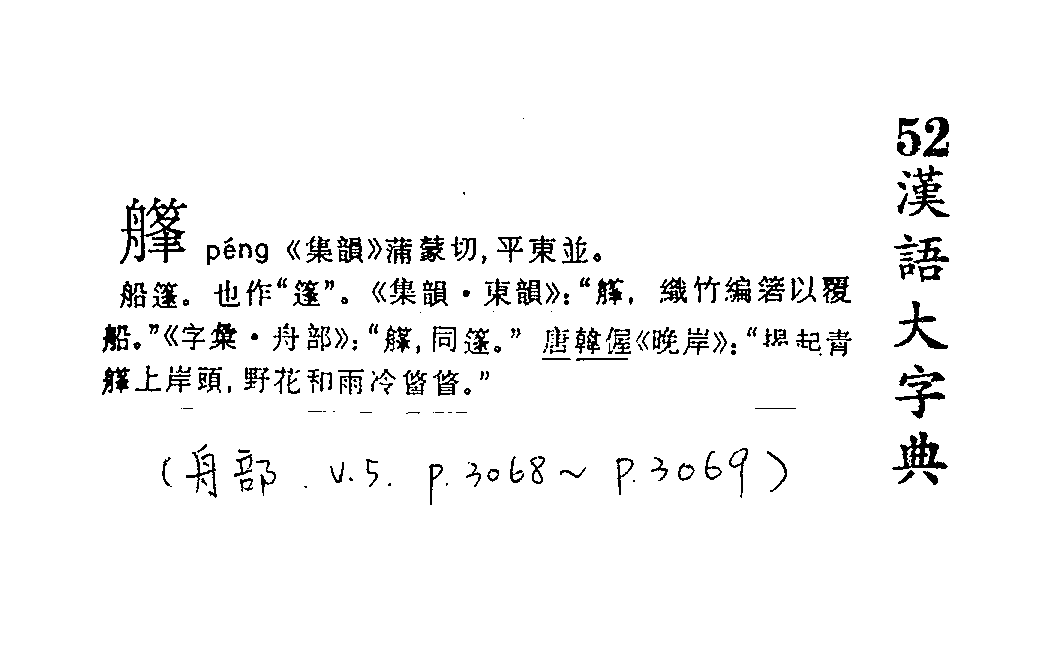 52漢語大字典
péng《集韻》蒲蒙切,平東並。
船篷。也作“篷”。《集韻·東韻》:“ ,織竹編箬以覆
船。”《字彙·舟部》:“ ,同篷。” 唐韓偓《晚岸》:“揭起青
上岸頭,野花和雨冷 。”
(舟部. V.5. p.3068~p.3069)